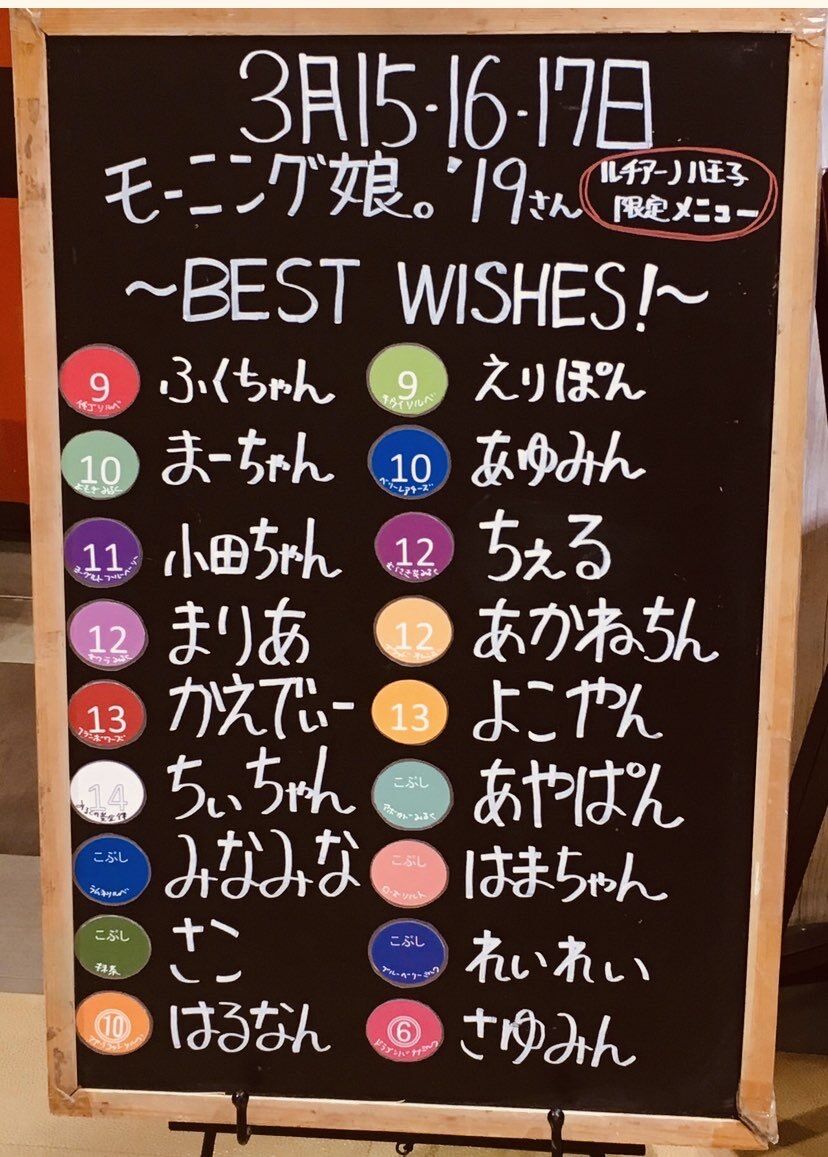 3月15・16・17日
モーニング娘。'19さん
ルチアーノ八王子
限定メニュー
～BEST WISHES!～
9 ふくちゃん
9 えりぽん
10 まーちゃん
10 あゆみん
11 小田ちゃん
12 ちぇる
12 まりあ
12 あかねちん
13 かえでぃー
13 よこやん
14 ちぃちゃん
こぶし あやぱん
こぶし みなみな
こぶし はまちゃん
こぶし さこ
抹茶
こぶし れいれい
⑩ はるなん
⑥ さゆみん